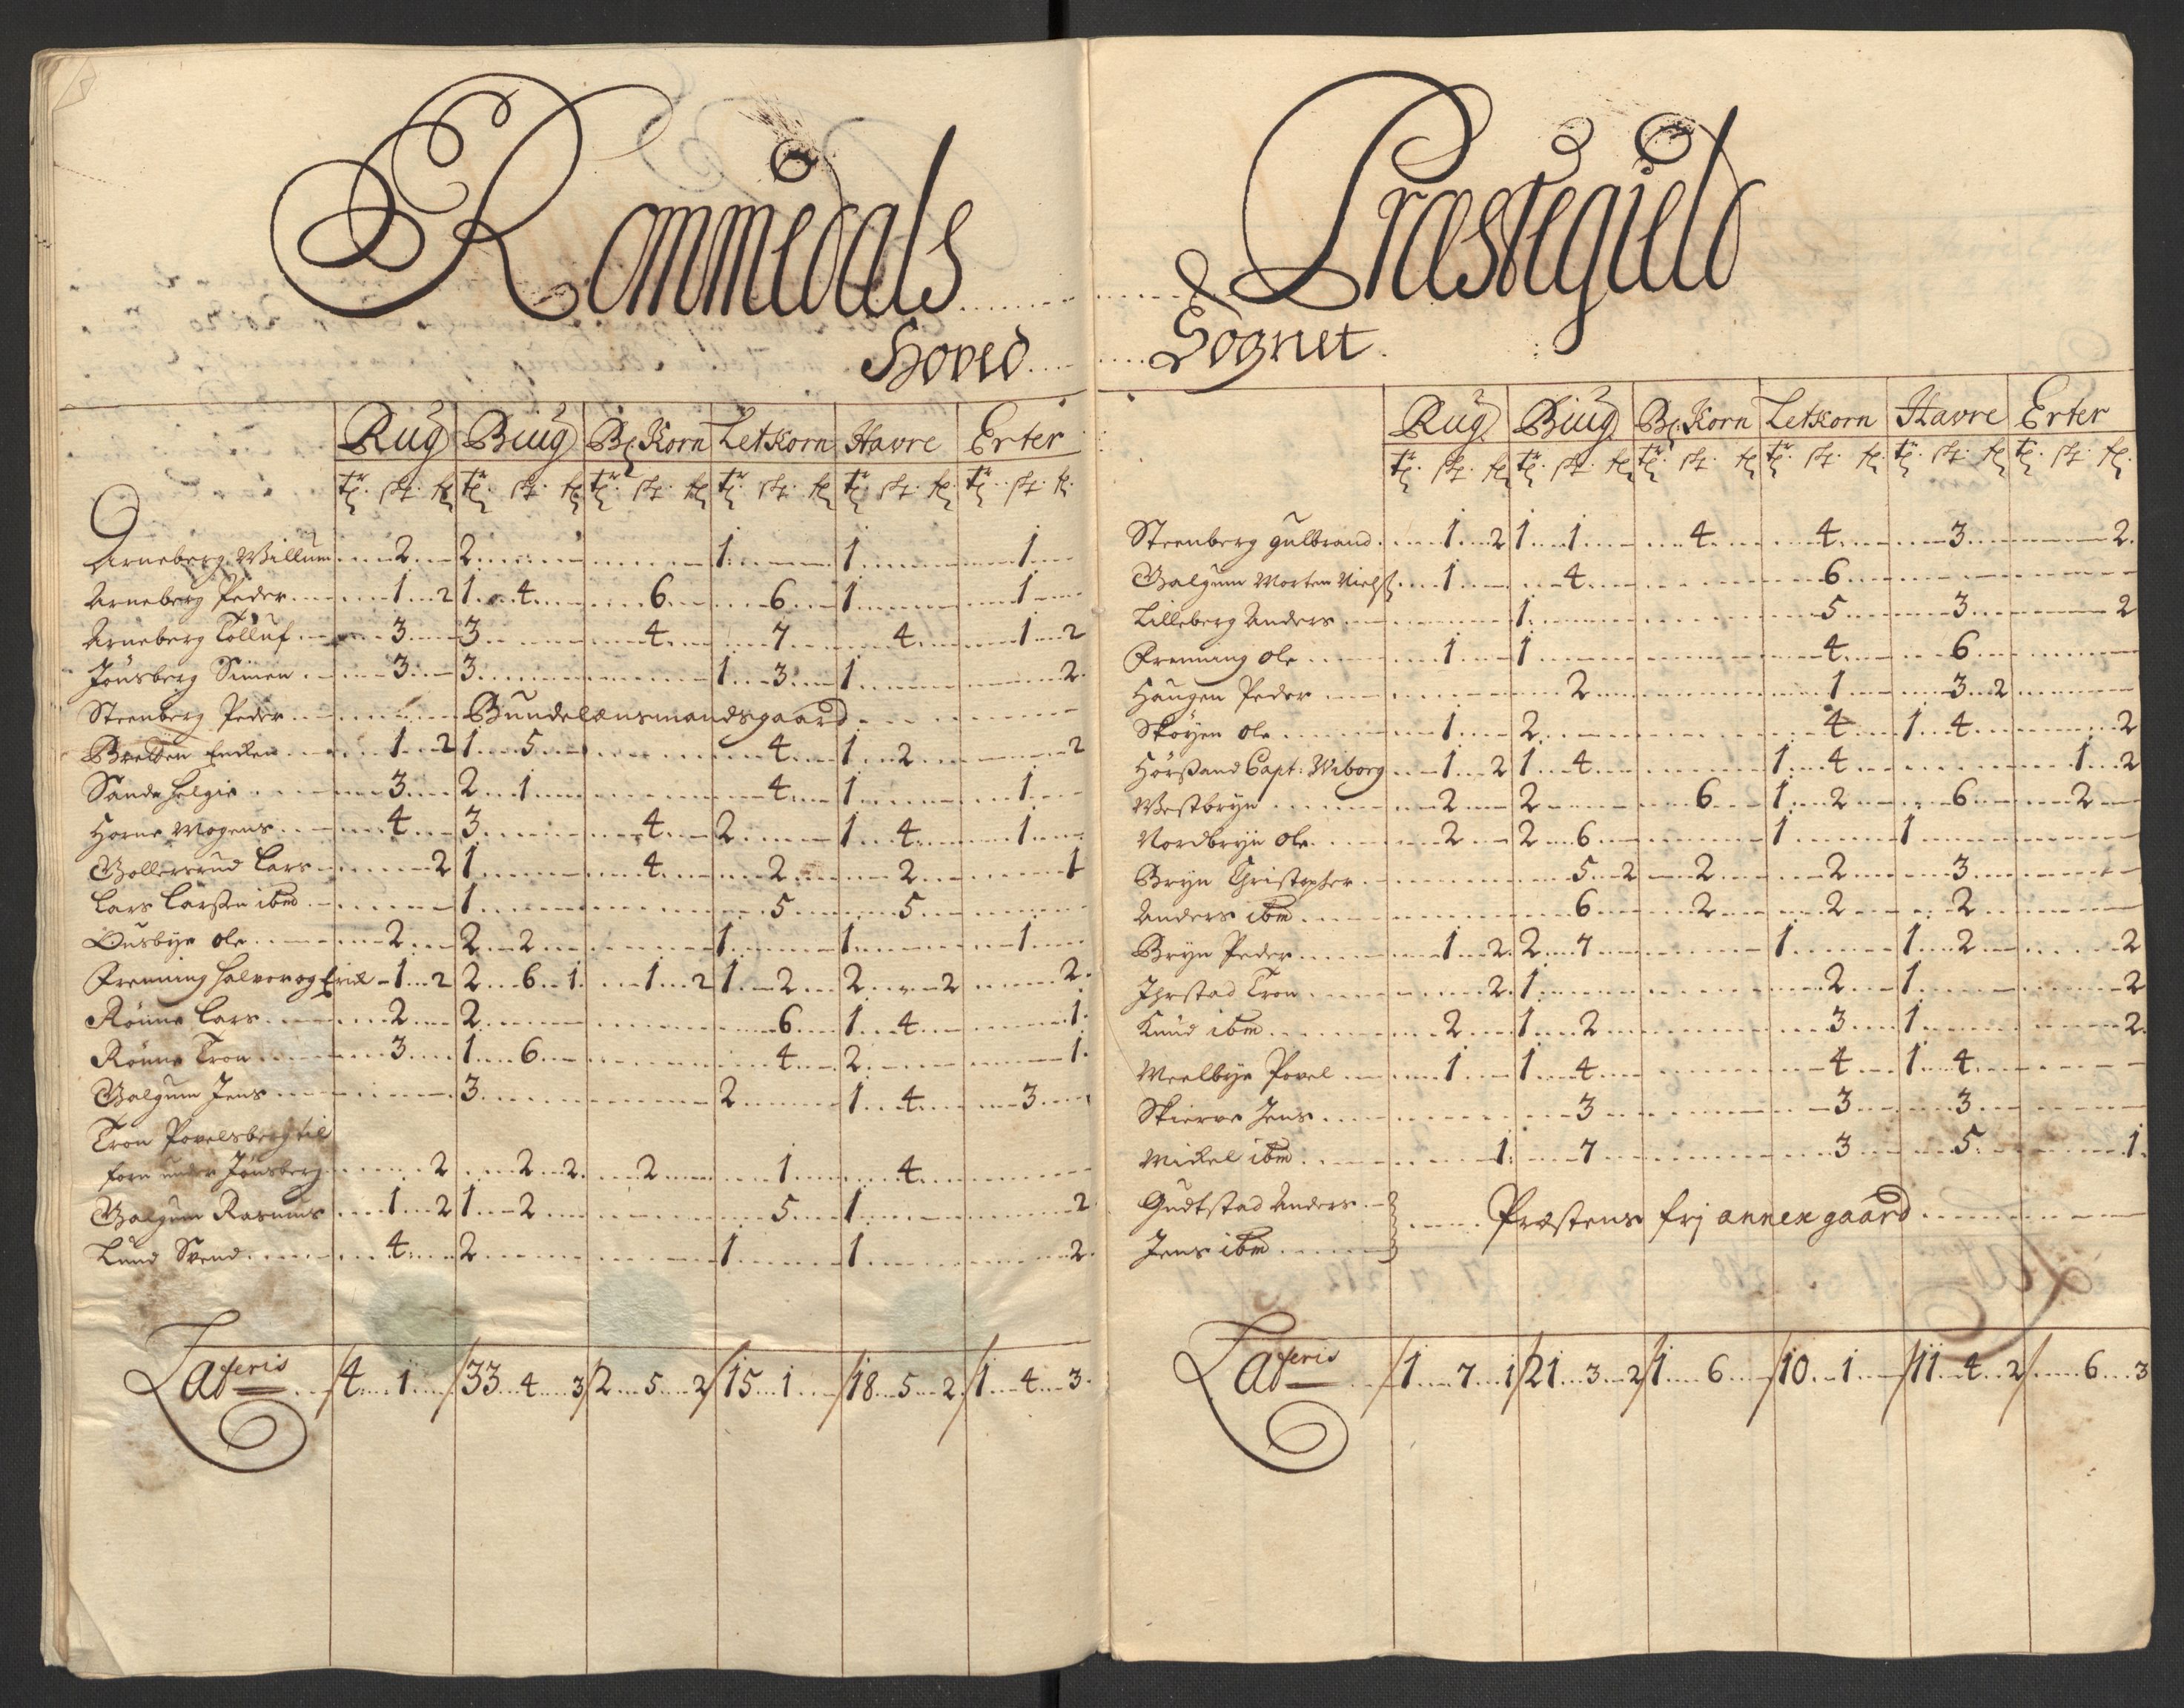 Rommedals
Hoved
Rug Biug Bl. Korn Letkorn Havre Erter
tr. sk. fr. tr. sk. fr. tr. sk. fr. tr. sk. fr. tr. sk. fr. tr. sk. fr.
Arneberg Willum 2 2 1 1 1
Arneberg Peder 1 2 1 4 6 6 1 1
Arneberg Tolluf 3 3 4 7 4 1 2
Jönsberg Simen 3 3 1 3 1 2
Steenberg Peder Bundelænsmandsgaard
Bretten 1 2 1 5 4 1 2 2
Sande Helgie 3 2 1 4 1 1
Horne Mogens 4 3 4 2 1 4 1
Gollersrud Lars 2 1 4 2 2 1
Lars Larssen ibm 1 5 5
Ousbye Ole 2 2 2 1 1 1
Frenning Halvor og Erich 1 2 2 6 1 1 2 1 2 2 2 2
Rönne Lars 2 2 6 1 4 1
Rönne Tron 3 1 6 4 2 1
Galgum Jens 3 2 1 4 3
Tron Povelsberg til
forn under Jönsberg 2 2 2 2 1 4
Galgum Rasmus 1 2 1 2 5 1 2
Lund Svend 4 2 1 1 2
Lateris 4 1 33 4 3 2 5 2 15 1 18 5 2 1 4 3
Præstegield
Sognet
Rug Biug Bl. Korn Letkorn Havre Erter
tr. sk. fr. tr. sk. fr. tr. sk. fr. tr. sk. fr. tr. sk. fr. tr. sk. fr.
Steenberg Gulbrand 1 2 1 1 4 4 3 2
Galgum Morten Nielss 1 4 6
Lilleberg Anders 1 5 3 2
Frenning Ole 1 1 4 6
Haugen Peder 2 1 3 2
Sköyen Ole 1 2 4 1 4 2
Hörssand Capt: Wiborg 1 2 1 4 1 4 1 2
Westbryn 2 2 6 1 2 6 2
Nordbryn Ole 2 2 6 1 1
Bryn Christopher 5 2 2 2 3
Anders ibm 6 2 2 2
Bryn Peder 1 2 2 7 1 1 2 2
Ihrstad Tron 2 1 2 1 2
Knud ibm 2 1 2 3 1 2
Meelbye Povel 1 1 4 4 1 4
Skierve Jens 3 3 3
Mickel ibm 1 7 3 5 1
Gudtstad Anders
Præstens frj annex gaard
Jens ibm
Lateris 1 7 1 21 3 2 1 6 10 1 11 4 2 6 3